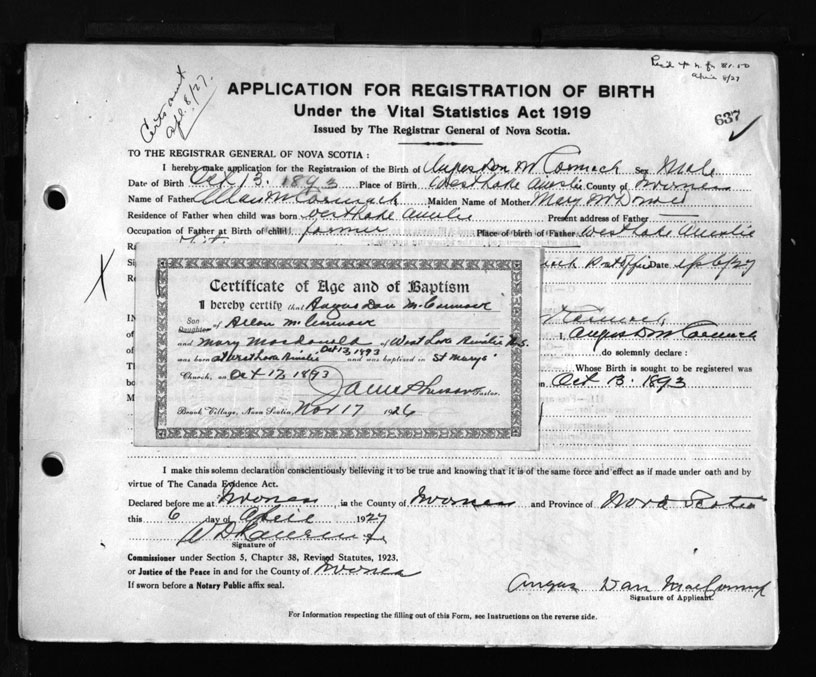 Certs sent
Apl. 8/27.
$1.50
8/27
637
APPLICATION FOR REGISTRATION OF BIRTH
Under the Vital Statistics Act 1919
Issued by The Registrar General of Nova Scotia.
TO THE REGISTRAR GENERAL OF NOVA SCOTIA :
I hereby make application for the Registration of the Birth of Angus Dan McCormack Sex Male
Date of Birth Oct 13. 1893 Place of Birth West Lake Ainslie County of Inverness
Name of Father Allan McCormack Maiden Name of Mother Mary McDonald
Residence of Father when child was born Westlake Ainslie Present address of Father —
Occupation of Father at Birth of child farmer Place of birth of Father Westlake Ainslie
Date Ap 6/27
Angus D McCormack
do solemnly declare :
Whose Birth is sought to be registered was
on Oct 13. 1893
Certificate of Age and of Baptism
I hereby certify that Angus Dan McCormack
Son
Daughter of Allan McCormack
and Mary MacDonald of West Lake Ainslie N.S.
was born at West Lake Ainslie Oct 13, 1893 and was baptised in St Marys
Church, on Oct 17, 1893
Pastor.
Brook Village, Nova Scotia, Nov 17 1926
I make this solemn declaration conscientiously believing it to be true and knowing that it is of the same force and effect as if made under oath and by
virtue of The Canada Evidence Act.
Declared before me at Inverness, in the County of Inverness and Province of Nova Scotia
this 6 day of April 1927
Signature of
Commissioner under Section 5, Chapter 38, Revised Statutes, 1923,
or Justice of the Peace in and for the County of Inverness
If sworn before a Notary Public affix seal.
Angus Dan MacCormack
Signature of Applicant.
For Information respecting the filling out of this Form, see Instructions on the reverse side.